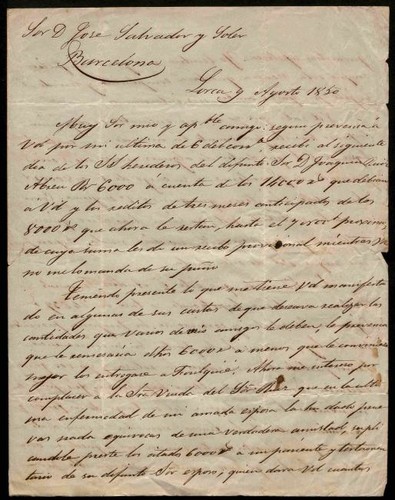 Sor D. Jose Salvador y Soler
Barcelona
Lorca 9 Agosto 1850
Muy Sor mio y apble amigo: segun prevenia á
Vd por mi ultima de 6 del corrte recibi al siguiente
dia de los Ses herederos del difunto Sor D. Joaquin
Abreu Rs 6000 á cuenta de los 14000 rs que debian
á Vd y los reditos de tres meses anticipados de los
8000 rs que ahora le restan, hasta el 7 de
de cuya suma les di un recibo provisional mientras Vd
no me lo manda de su puño
Teniendo presente lo que me tiene Vd manifesta
do en algunas de sus cartas de que deseava realizar las
cantidades que varios de mis amigos le deben, le prevenia
que le remesaria dhos 6000 rs á menos que le conviniera
mejor los entregara a Ahora me intereso por
complacer a la Sra Viuda del Sor que en la ulti
ma enfermedad de mi amada esposa la ha dado prue
vas nada equivocas de una verdadera amistad, supli
candole preste los citados 6000 rs a un pariente y testamen
tario de su difunto Sor esposo, quien dará Vd cuantas